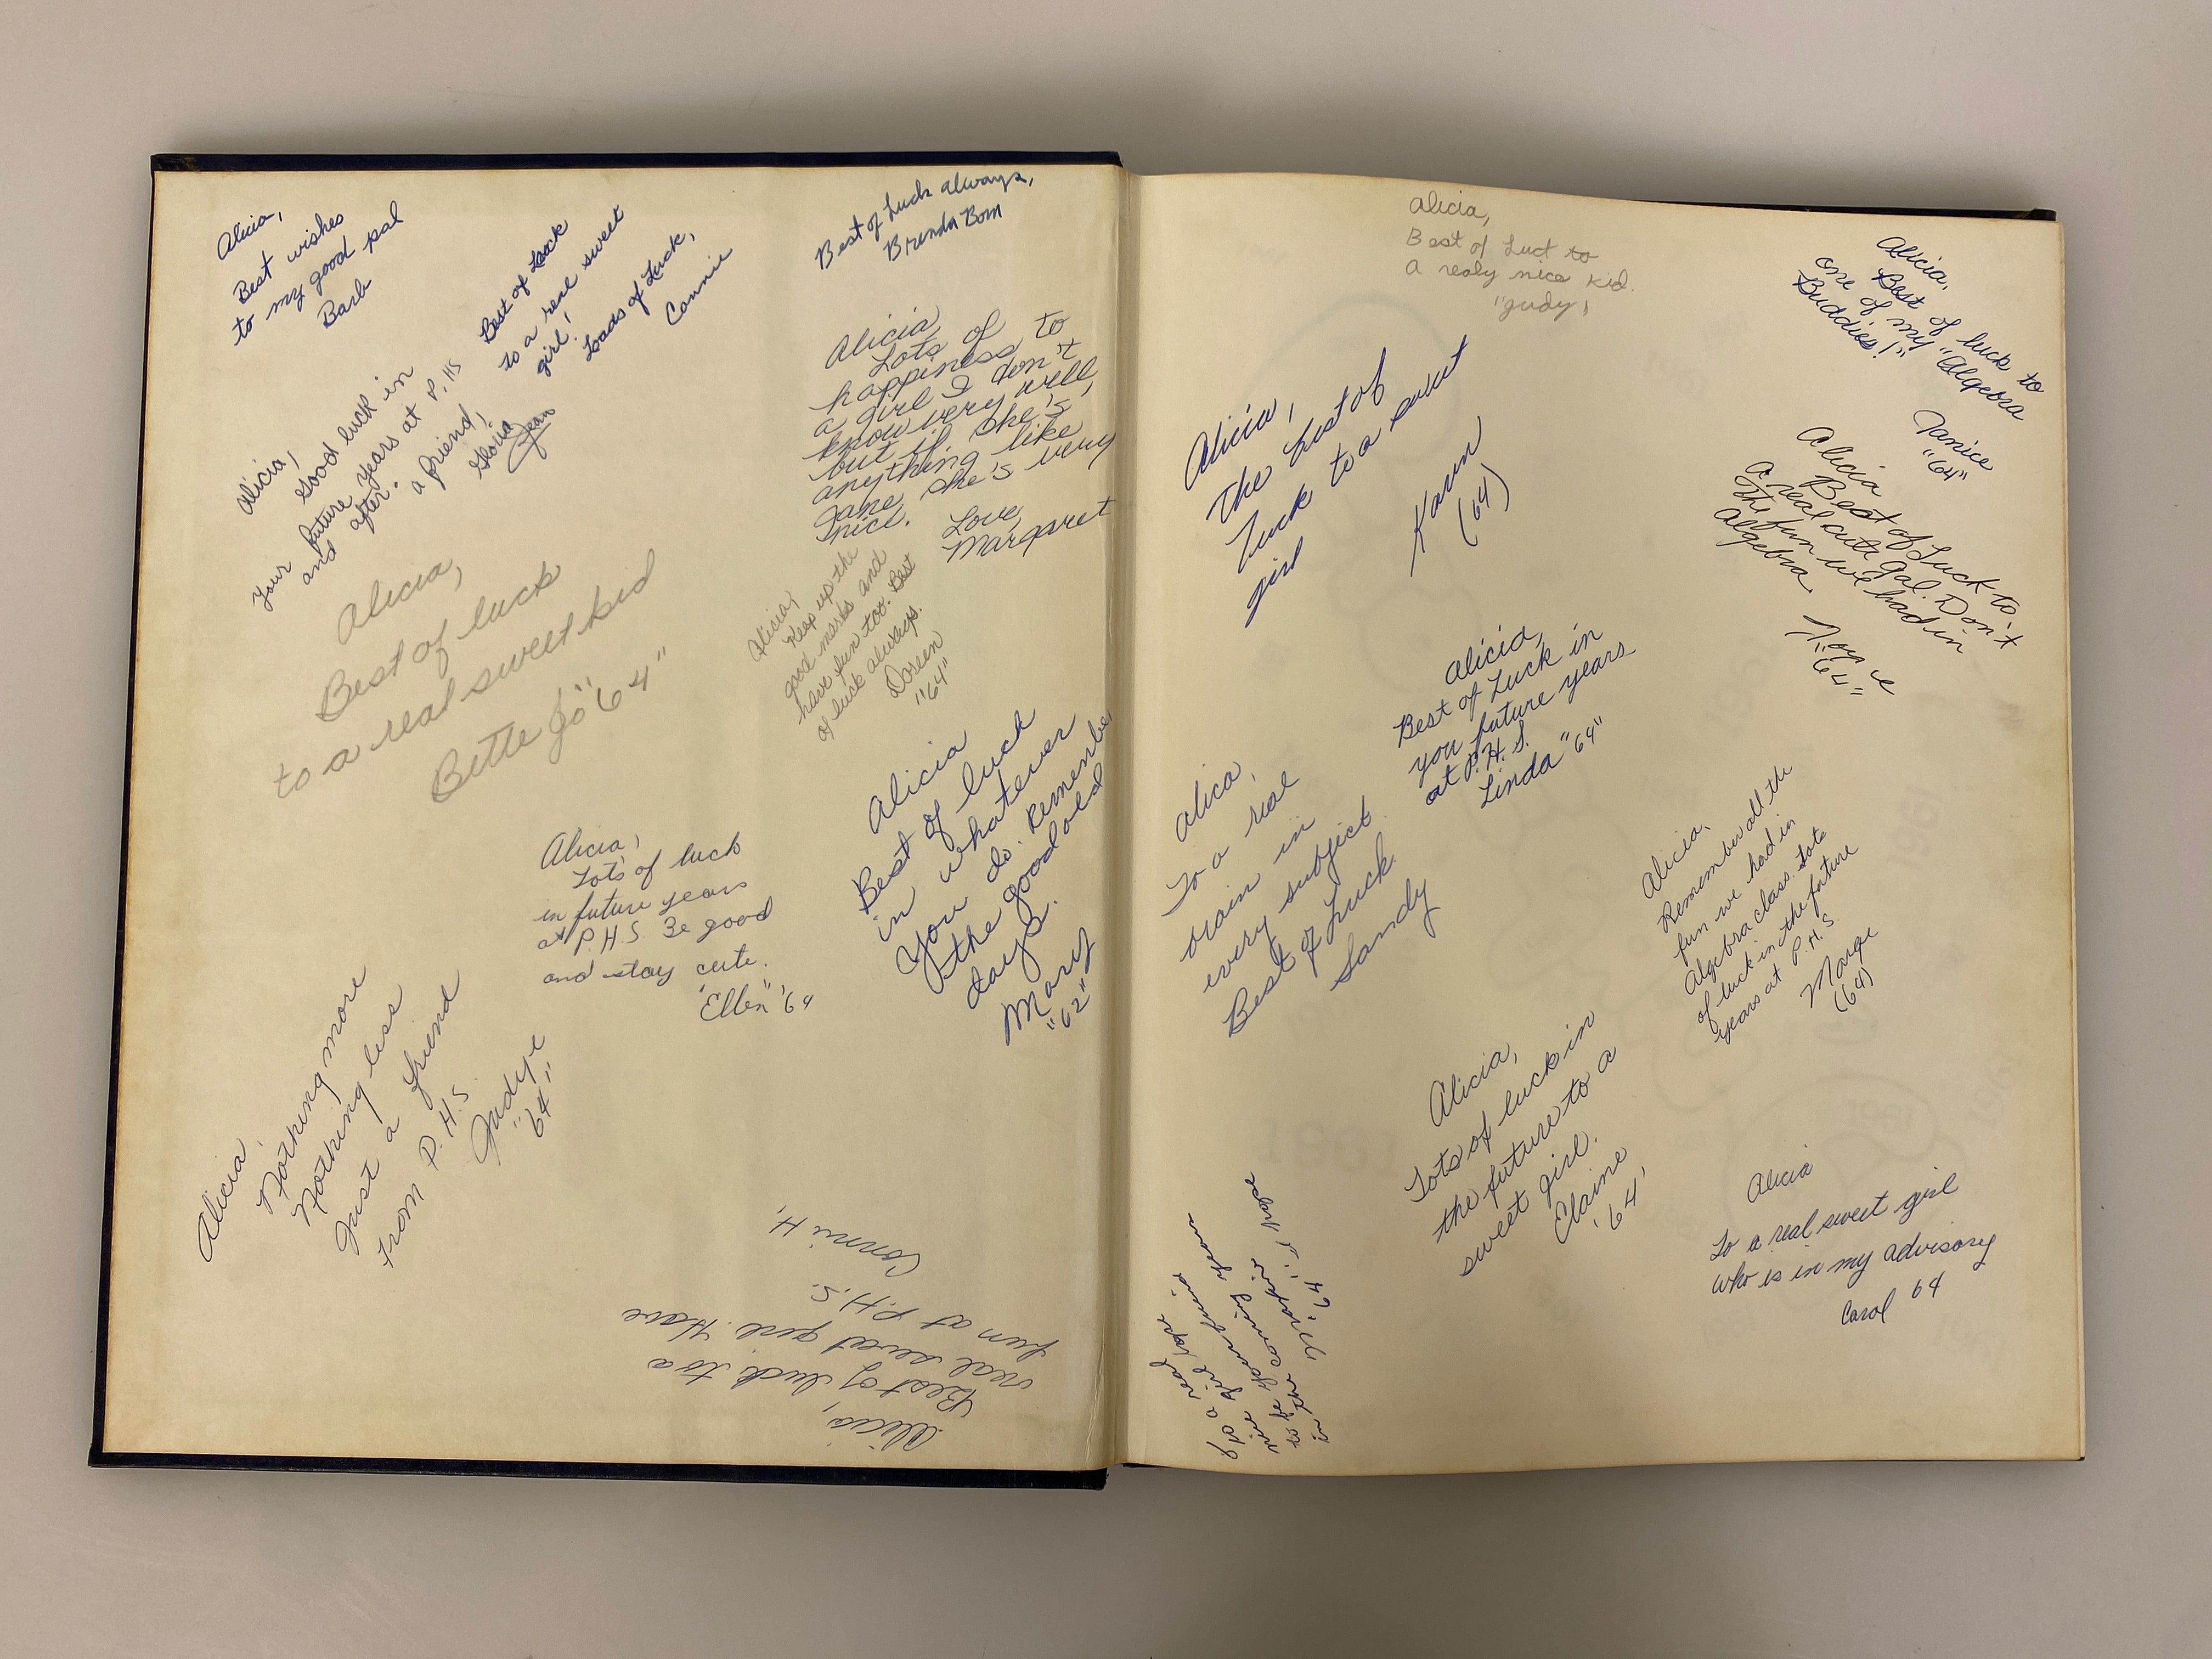 Alicia,
Best wishes
to my good pal
Barb
Best of Luck
to a real sweet
girl!
Loads of Luck,
Connie
Best of Luck always,
Brenda Bom
Alicia,
Good luck in
Your future years at P.HS
and after.
a friend,
Gloria
Jean
Alicia,
Lots of
happiness to
a girl I don't
know very well,
but if she's
anything like
Jane, she's very
nice.
Love,
Margaret
Alicia,
Best of luck
to a real sweet kid
Bette Jo "64"
Alicia,
Keep up the
good marks and
have fun too. Best
of luck always.
Doreen
"64"
Alicia
Best of luck
in whatever
You do. Remember
the good old
days.
Mary
"62"
Alicia,
Lots of luck
in future years
at P.H.S. Be good
and stay cute.
"Ellen" '64
Alicia,
Nothing more
Nothing less
Just a friend
From P.H.S.
Judye
"64"
Alicia,
Best of luck to a
real sweet girl. Have
fun at P.H.S.
Connie H,
Alicia,
Best of Luct to
A realy nice kid.
"Judy"
Alicia,
Best of luck to
one of my "Algebra
Buddies!"
Janice
"64"
Alicia,
The best of
luck to a sweet
girl
Karen
(64)
Alicia
Best of Luck to
A real cute gal. Don't
The fun we had in
Algebra
Margie
"64"
Alicia,
Best of Luck in
you future years
at P.H.S.
Linda "64"
Alica,
To a real
brain in
every subject
Best of Luck
Sandy
Alicia,
Remember all the
fun we had in
Algebra class. Lots
of luck in the future
years at P.H.S.
Marge
(64)
Alicia,
Lots of luck in
the future to a
sweet girl.
Elaine
'64'
Alicia
To a real sweet girl
who is in my advisory
Carol 64
To a real
nice girl I hope
to be your friend
in the coming year
"64"